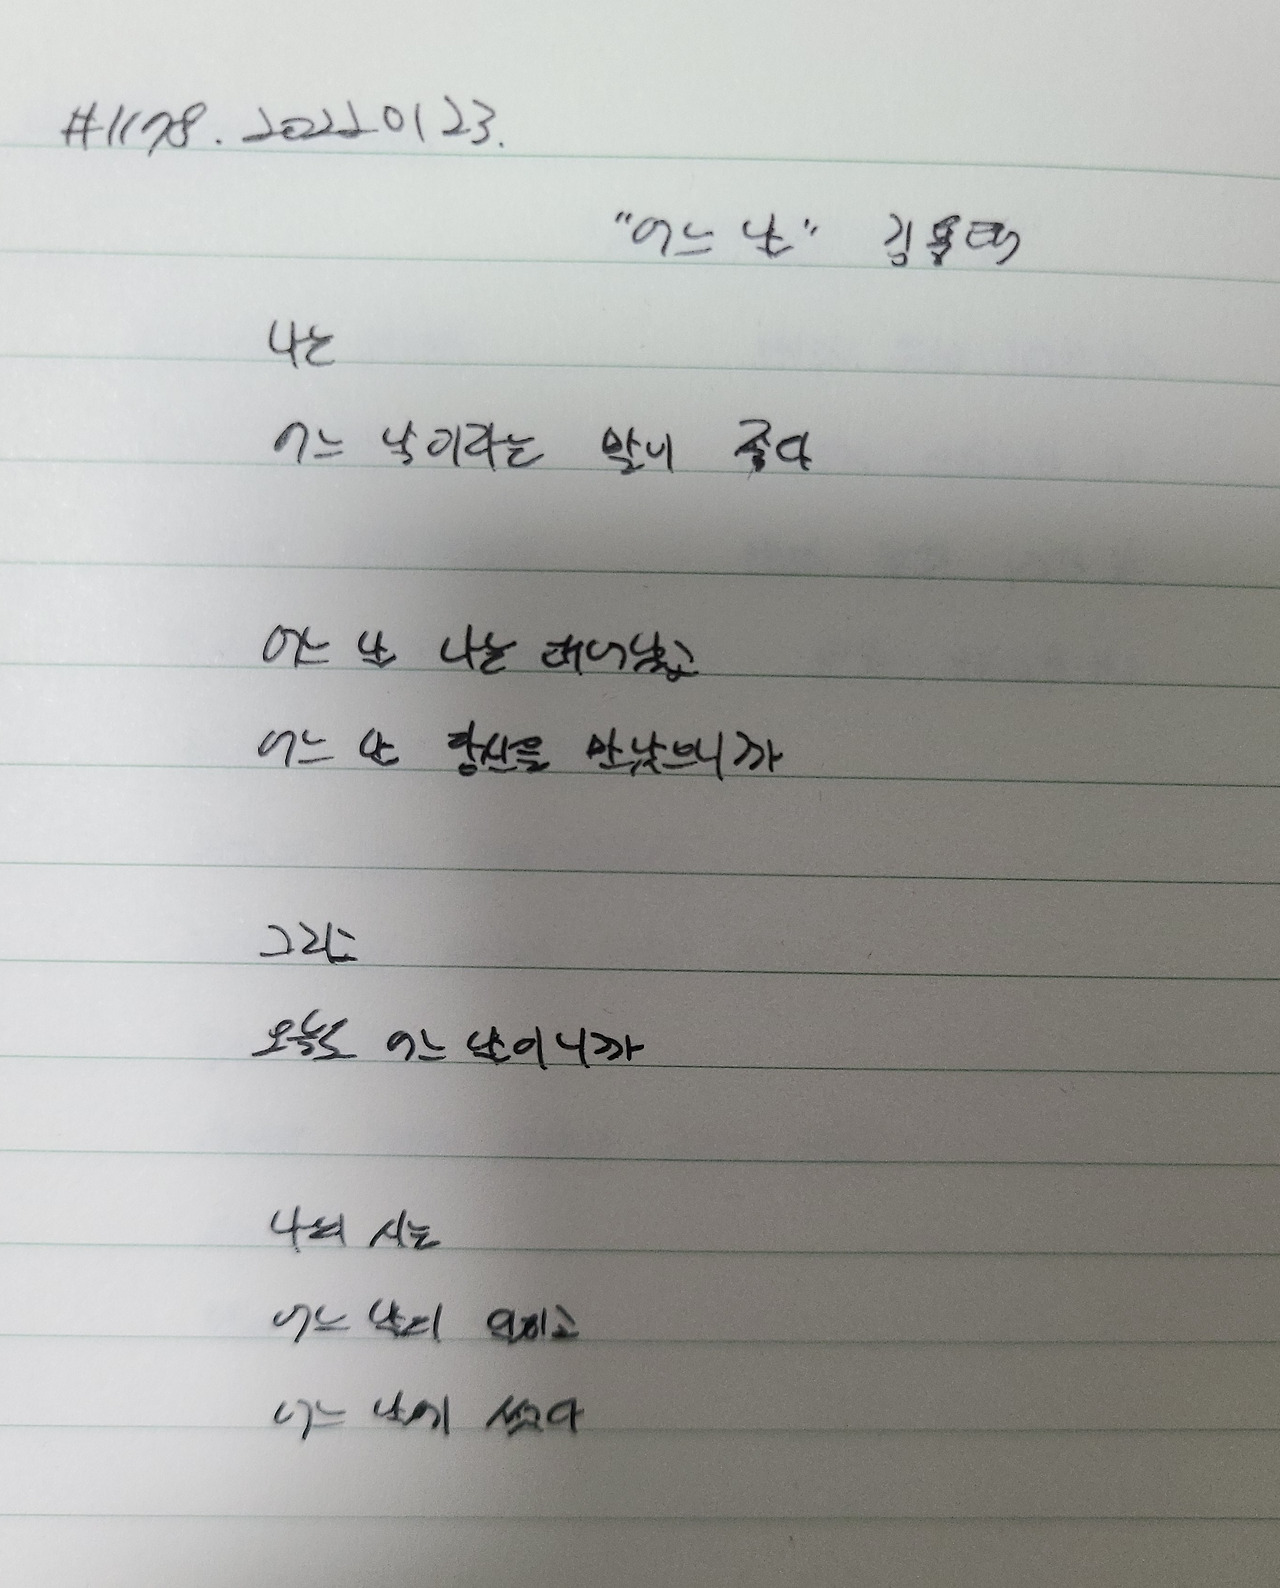 #1178. 20220123.
"어느 날" 김용택
나는
어느 날이라는 말이 좋다
어느 날 나는 태어났고
어느 날 당신을 만났으니까
그리고
오늘도 어느 날이니까
나의 시는
어느 날의 일이고
어느 날에 썼다